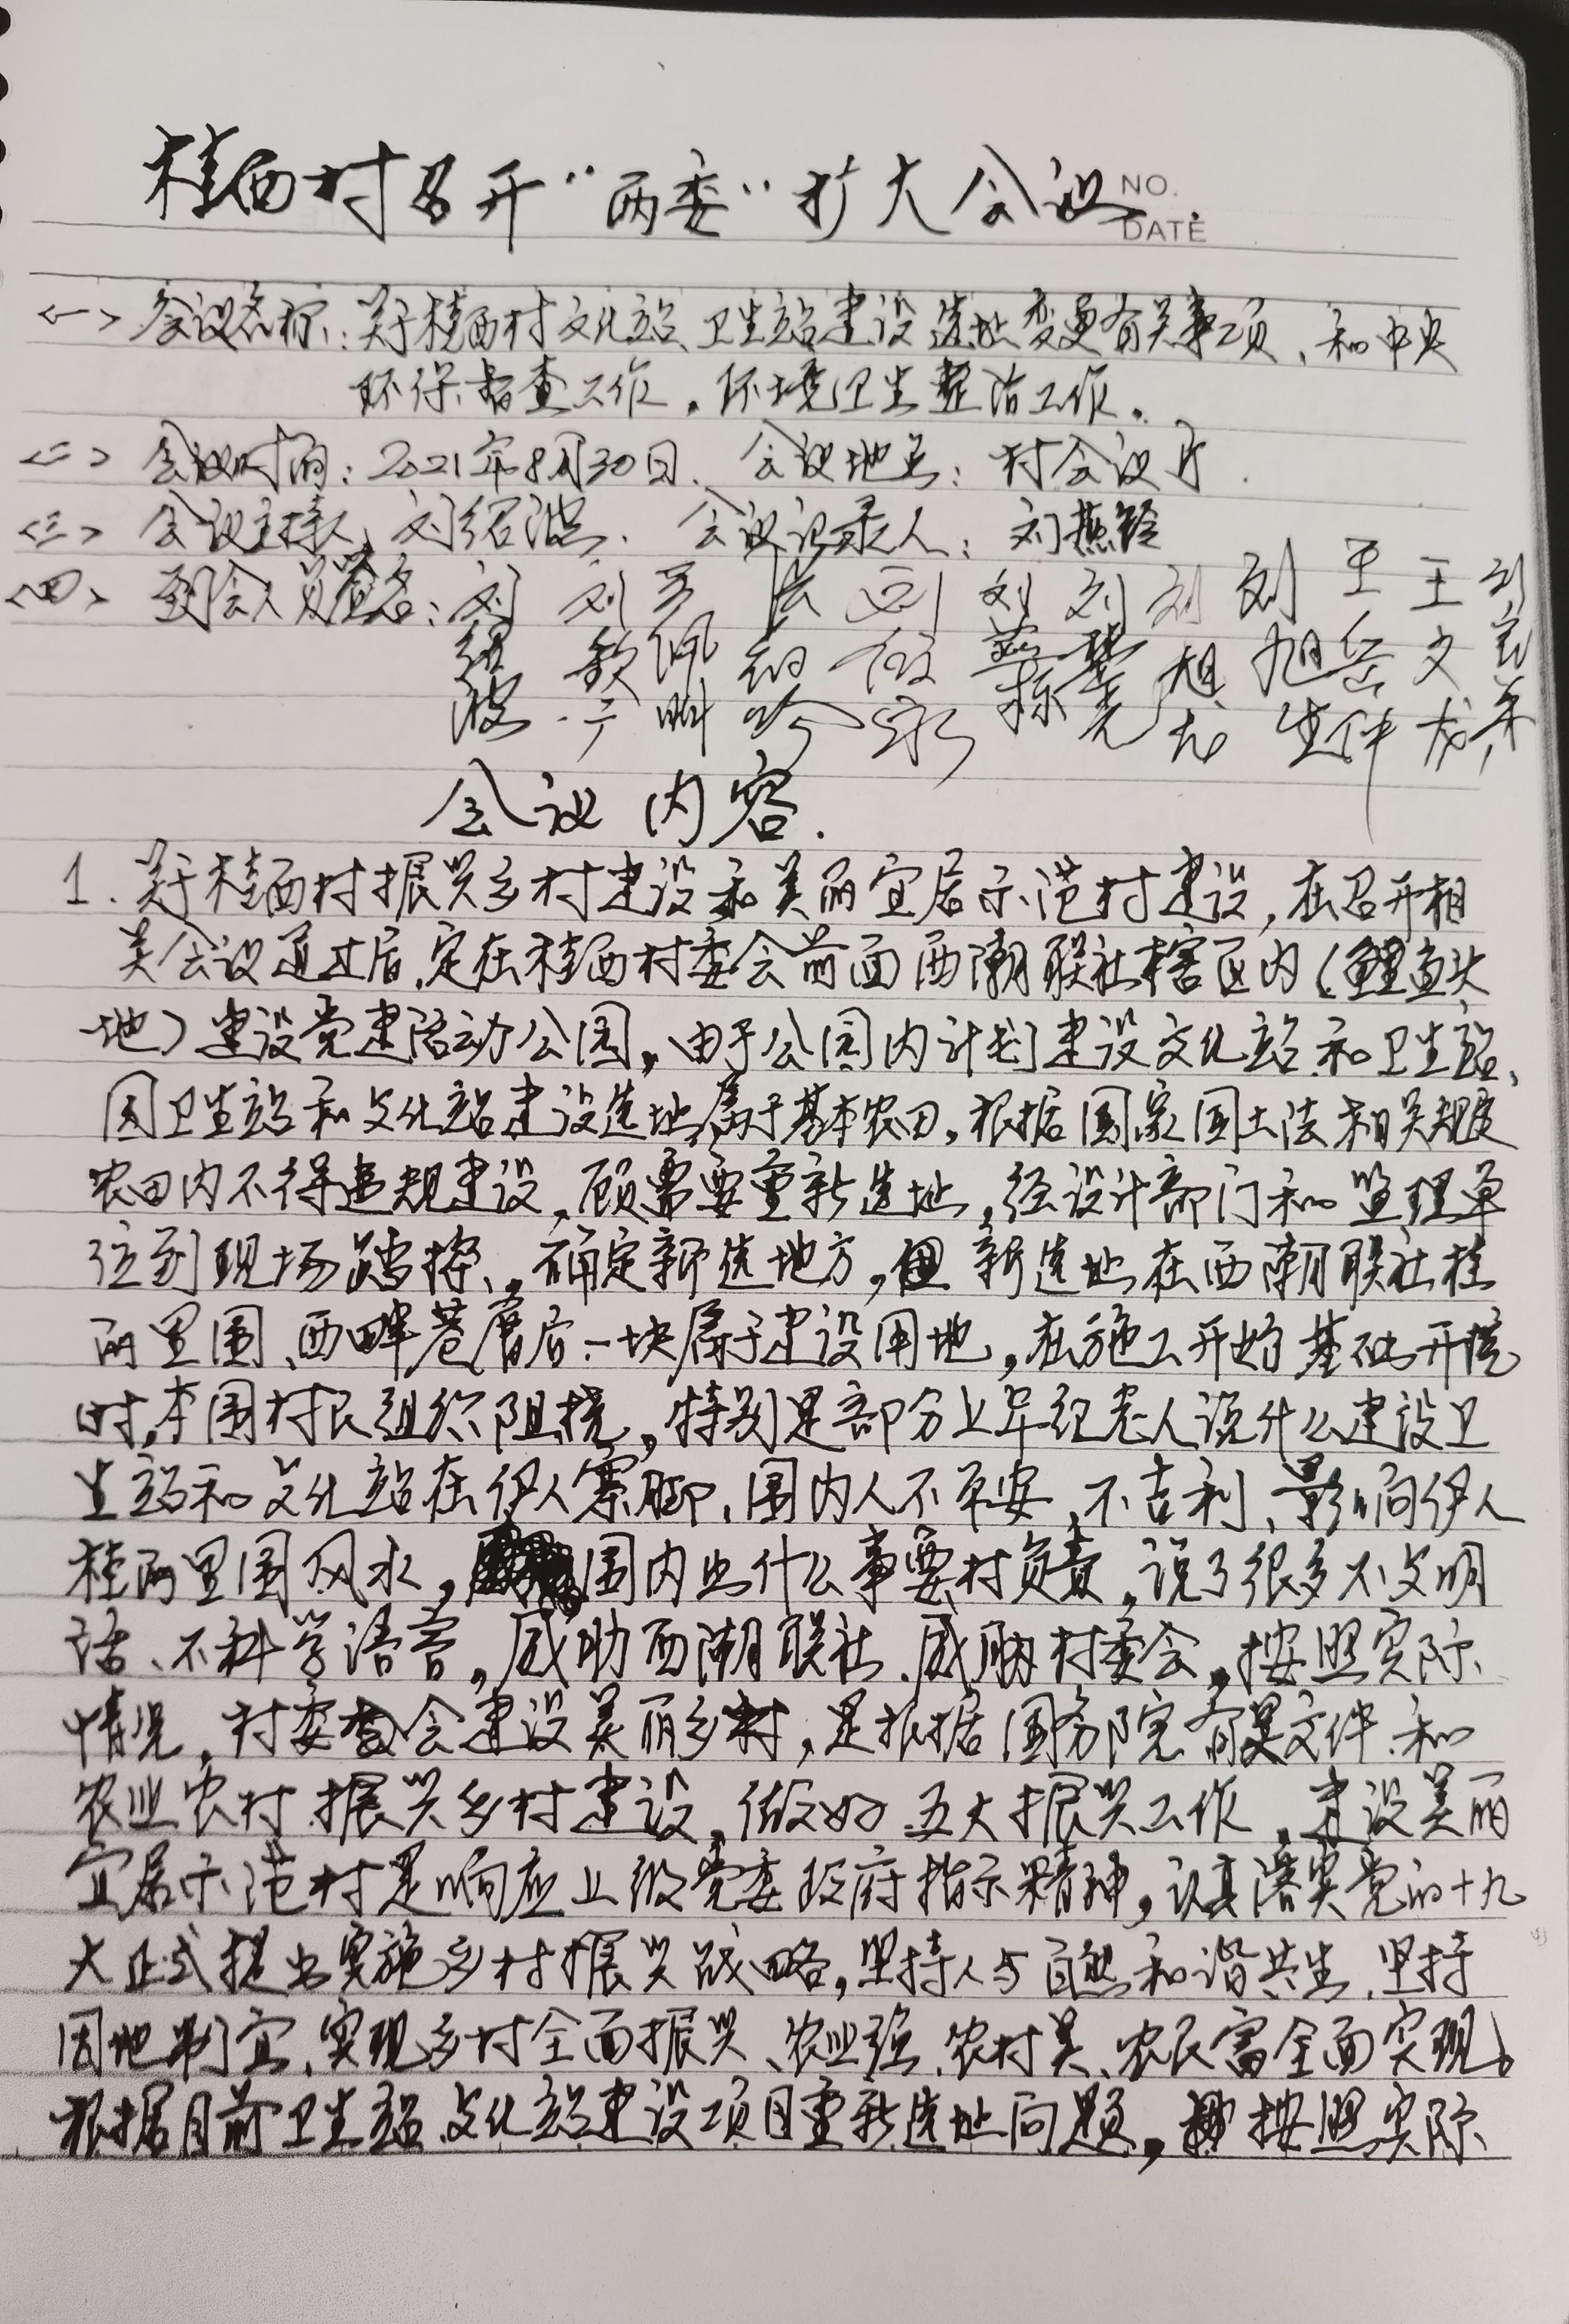 桂西村召开“两委”扩大会议.
NO.
DATE
<一> 会议名称:关于桂西村文化站、卫生站建设选址变更有关事项、和中央
环保督查工作,环境卫生整治工作。
<二> 会议时间:2021年8月30日、会议地点:村会议厅.
<三> 会议主持人、刘绍波、会议记录人:刘燕铃
<四> 到会人员签名:刘绍波 刘 刘 刘 刘 刘旭生 王岳伟 王文成
会议内容.
1.关于桂西村振兴乡村建设和美丽宜居示范村建设,在召开相
关会议通过后,定在桂西村委会前面西潮联社辖区内(鲤鱼头
地)建设党建活动公园,由于公园内计划建设文化站和卫生站、
因卫生站和文化站建设选址属于基本农田,根据国家国土法相关规定
农田内不得违规建设,顾需要重新选址,经设计部门和监理单
位到现场踏择、确定新选地方,但新选址在西潮联社桂
两里围、西畔巷厝后一块属于建设用地,在施工开始基础开挖
时,本围村民组织阻挠,特别是部分上年纪老人说什么建设卫
生站和文化站在伊人寨脚,围内人不平安、不吉利、影响伊人
桂两里围风水,围内出什么事要村负责,说了很多不文明
话、不科学语言,威胁西潮联社、威胁村委会,按照实际
情况,村委会建设美丽乡村,是根据国务院有关文件和
农业农村振兴乡村建设,做好五大振兴工作,建设美丽
宜居示范村是响应上级党委政府指示精神,认真落实党的十九
大正式提出实施乡村振兴战略,坚持人与自然和谐共生、坚持
因地制宜、实现乡村全面振兴、农业强、农村美、农民富全面实现。
根据目前卫生站、文化站建设项目重新选址问题,按照实际